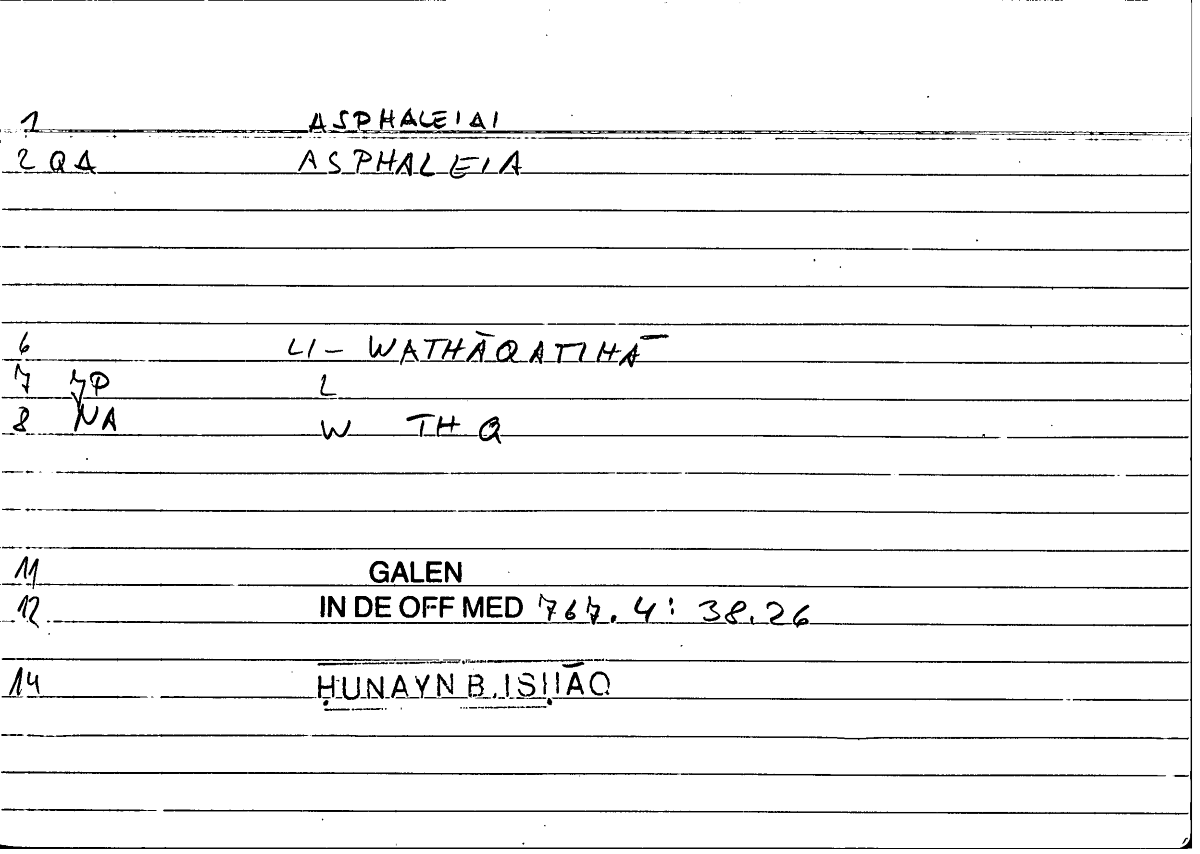 1 ASPHALEIAI
2 QA ASPHALEIA
6 LI- WATHĀQATIHĀ
7 7P L
8 NA W TH Q
11 GALEN
12 IN DE OFF MED 767.4: 38.26
14 ḤUNAYN B. ISḤĀQ